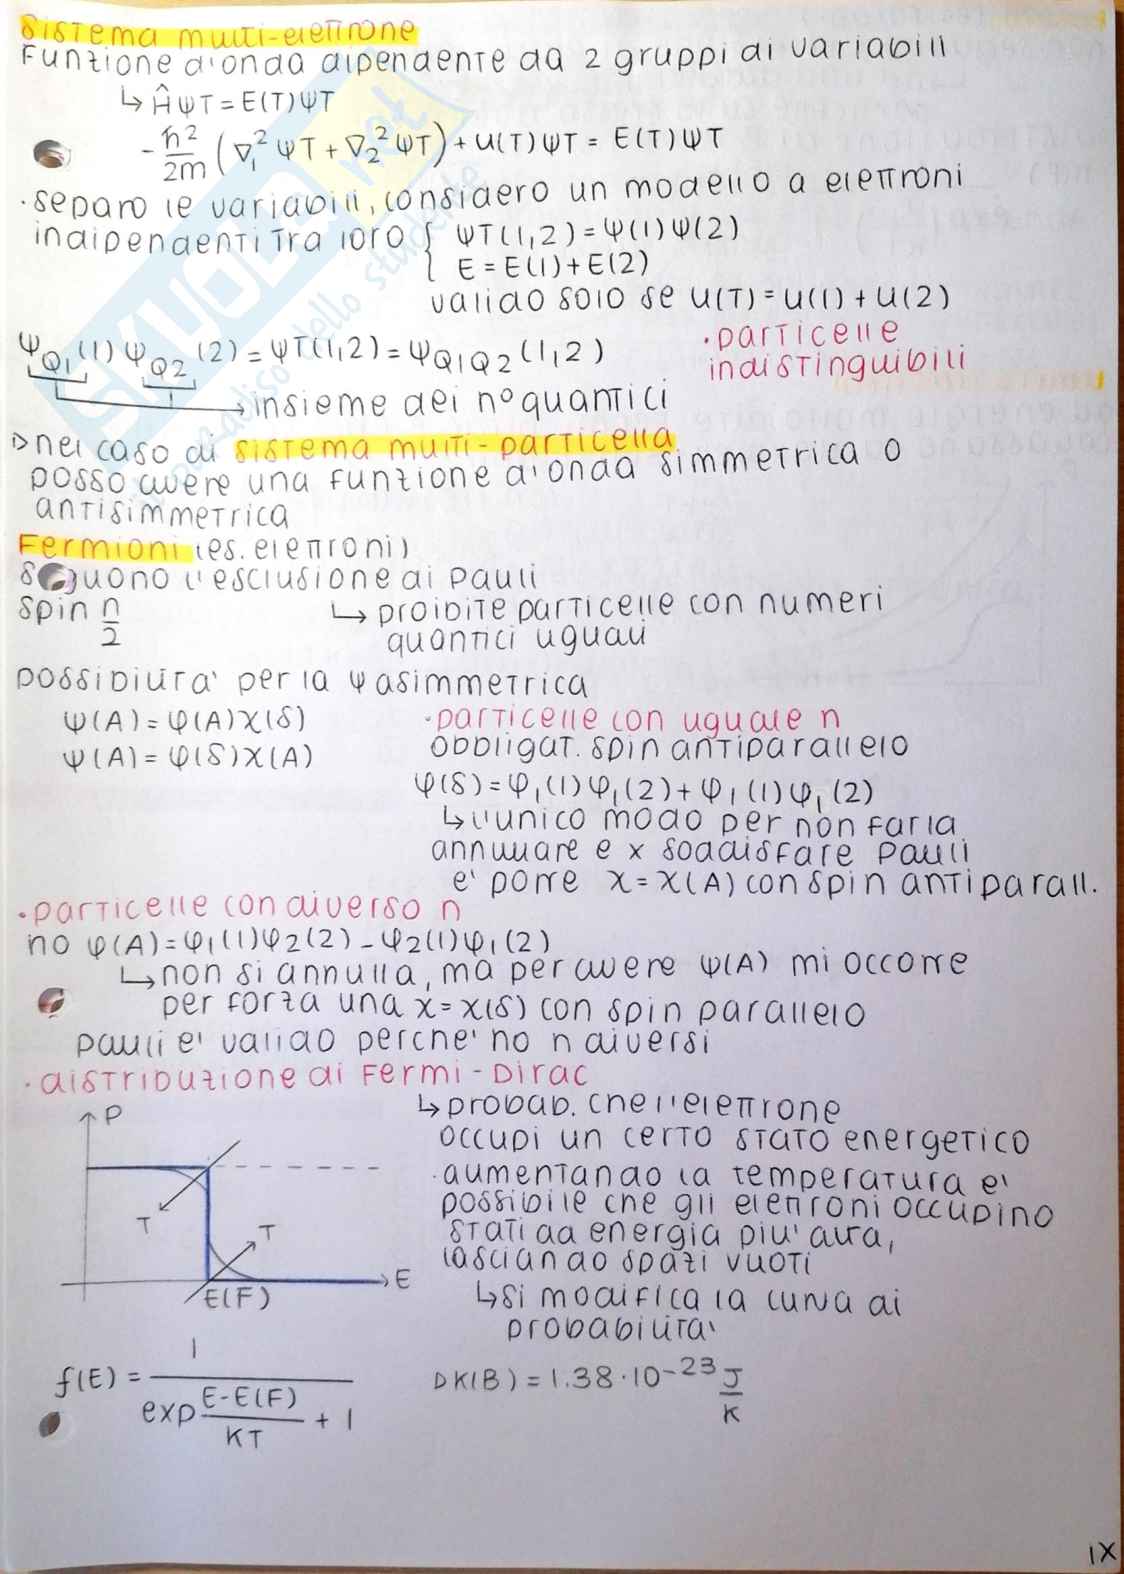 sistema multi-elettrone
Funzione d'onda dipendente da 2 gruppi di variabili
↳ Ĥ ψT = E(T) ψT
-ℏ²/2m (∇₁² ψT + ∇₂² ψT) + U(T) ψT = E(T) ψT
· separo le variabili, considero un modello a elettroni
indipendenti tra loro { ψT(1,2) = ψ(1) ψ(2)
{ E = E(1) + E(2)
valido solo se U(T) = U(1) + U(2)
ψQ1 (1) ψQ2 (2) = ψT(1,2) = ψQ1Q2 (1,2)
· particelle
indistinguibili
→ insieme dei n° quantici
▷ nel caso di sistema multi-particella
posso avere una funzione d'onda simmetrica o
antisimmetrica
Fermioni (es. elettroni)
seguono l'esclusione di Pauli
spin n/2
↳ proibite particelle con numeri
quantici uguali
possibilità per la ψ asimmetrica
ψ(A) = φ(A) χ(S)
ψ(A) = φ(S) χ(A)
· particelle con uguale n
obbligat. spin antiparallelo
φ(S) = φ₁(1) φ₁(2) + φ₁(1) φ₁(2)
↳ l'unico modo per non farla
annullare e x soddisfare Pauli
e' porre χ = χ(A) con spin antiparall.
· particelle con diverso n
ho φ(A) = φ₁(1) φ₂(2) - φ₂(1) φ₁(2)
↳ non si annulla, ma per avere ψ(A) mi occorre
per forza una χ = χ(S) con spin parallelo
Pauli e' valido perche' ho n diversi
· distribuzione di Fermi-Dirac
↳ probab. che l'elettrone
occupi un certo stato energetico
· aumentando la temperatura e'
possibile che gli elettroni occupino
stati ad energia piu' alta,
lasciando spazi vuoti
↳ si modifica la curva di
probabilita'
P
T
T
E
E(F)
f(E) = 1 / exp (E-E(F))/KT + 1
▷ K(B) = 1.38 · 10⁻²³ J/K
IX
SKUOLA.net
il paradiso dello studente